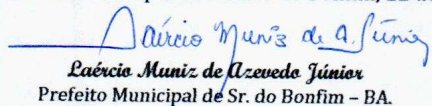 Laércio Muniz de A. Júnior
Laércio Muniz de Azevedo Júnior
Prefeito Municipal de Sr. do Bonfim – BA.